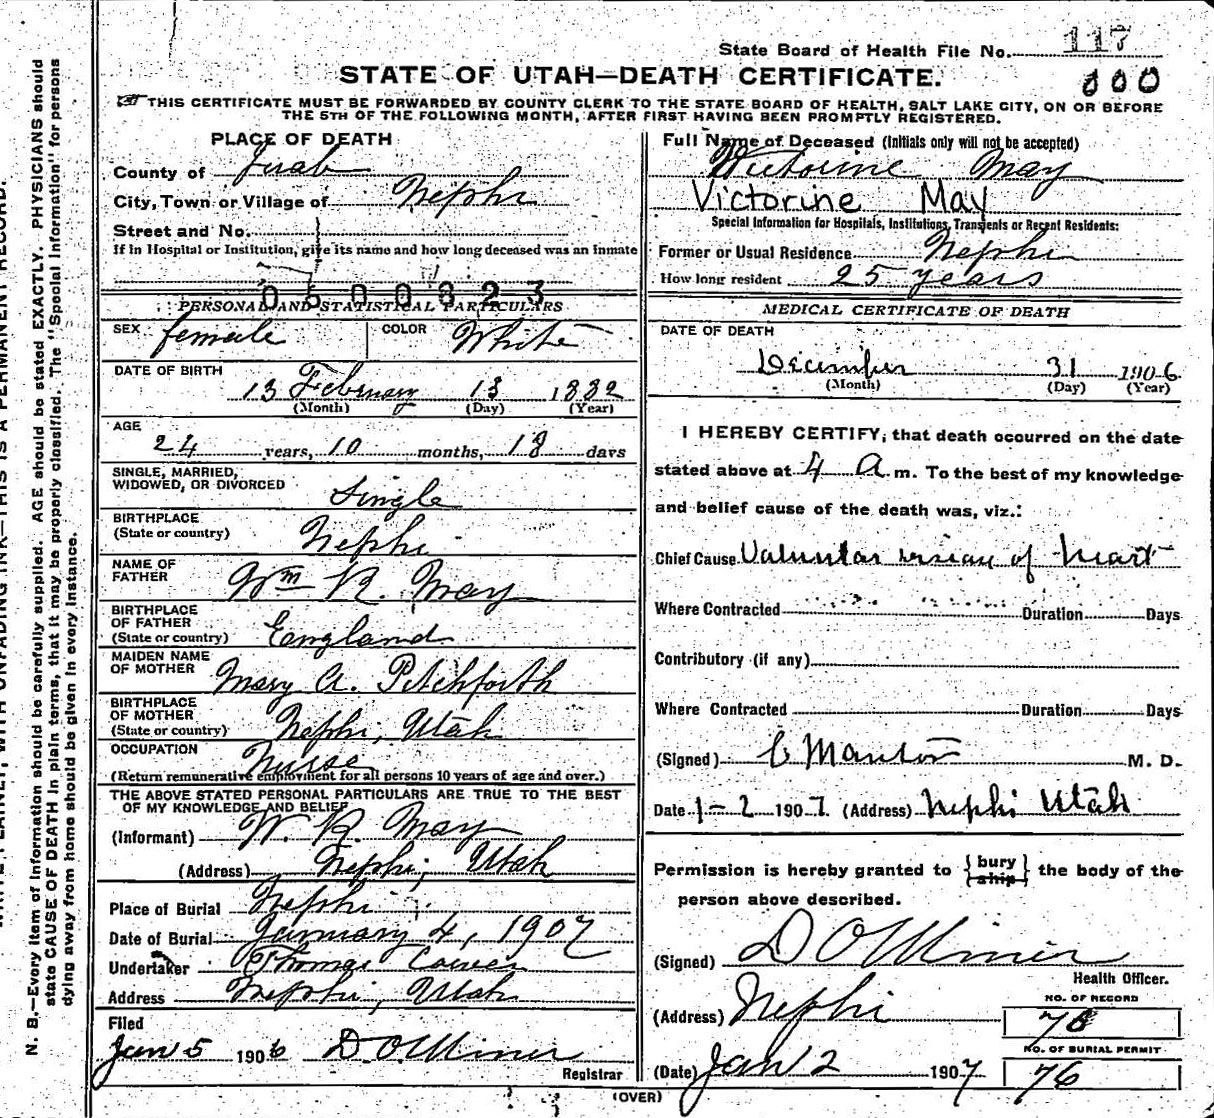 State Board of Health File No. 117
STATE OF UTAH—DEATH CERTIFICATE.
000
THIS CERTIFICATE MUST BE FORWARDED BY COUNTY CLERK TO THE STATE BOARD OF HEALTH, SALT LAKE CITY, ON OR BEFORE
THE 5TH OF THE FOLLOWING MONTH, AFTER FIRST HAVING BEEN PROMPTLY REGISTERED.
PLACE OF DEATH
County of Juab
City, Town or Village of Nephi
Street and No.
If in Hospital or Institution, give its name and how long deceased was an inmate
0500823
PERSONAL AND STATISTICAL PARTICULARS
SEX female COLOR White
DATE OF BIRTH
13 February 13 1882
(Month) (Day) (Year)
AGE
24 years, 10 months, 18 days
SINGLE, MARRIED,
WIDOWED, OR DIVORCED Single
BIRTHPLACE
(State or country) Nephi
NAME OF
FATHER Wm R. May
BIRTHPLACE
OF FATHER
(State or country) England
MAIDEN NAME
OF MOTHER Mary A. Pitchforth
BIRTHPLACE
OF MOTHER
(State or country) Nephi, Utah
OCCUPATION Nurse
(Return remunerative employment for all persons 10 years of age and over.)
THE ABOVE STATED PERSONAL PARTICULARS ARE TRUE TO THE BEST
OF MY KNOWLEDGE AND BELIEF
(Informant) W. R. May
(Address) Nephi, Utah
Place of Burial Nephi
Date of Burial January 4, 1907
Undertaker Thomas
Address Nephi, Utah
Filed
Jan 5 1906 D. O. Miner
Registrar
Full Name of Deceased (Initials only will not be accepted)
Victorine May
Victorine May
Special Information for Hospitals, Institutions, Transients or Recent Residents:
Former or Usual Residence Nephi
How long resident 25 years
MEDICAL CERTIFICATE OF DEATH
DATE OF DEATH
December 31 1906
(Month) (Day) (Year)
I HEREBY CERTIFY, that death occurred on the date
stated above at 4 a m. To the best of my knowledge
and belief cause of the death was, viz.:
Chief Cause of heart
Where Contracted Duration Days
Contributory (if any)
Where Contracted Duration Days
(Signed) M. D.
Date 1-2 1907. (Address) Nephi Utah
Permission is hereby granted to {bury ship} the body of the
person above described.
(Signed) D O Miner
Health Officer.
(Address) Nephi
NO. OF RECORD
78
NO. OF BURIAL PERMIT
76
(Date) Jan 2 1907
(OVER)
N. B.—Every item of information should be carefully supplied. AGE should be stated EXACTLY. PHYSICIANS should
state CAUSE OF DEATH in plain terms, that it may be properly classified. The "Special Information" for persons
dying away from home should be given in every instance.